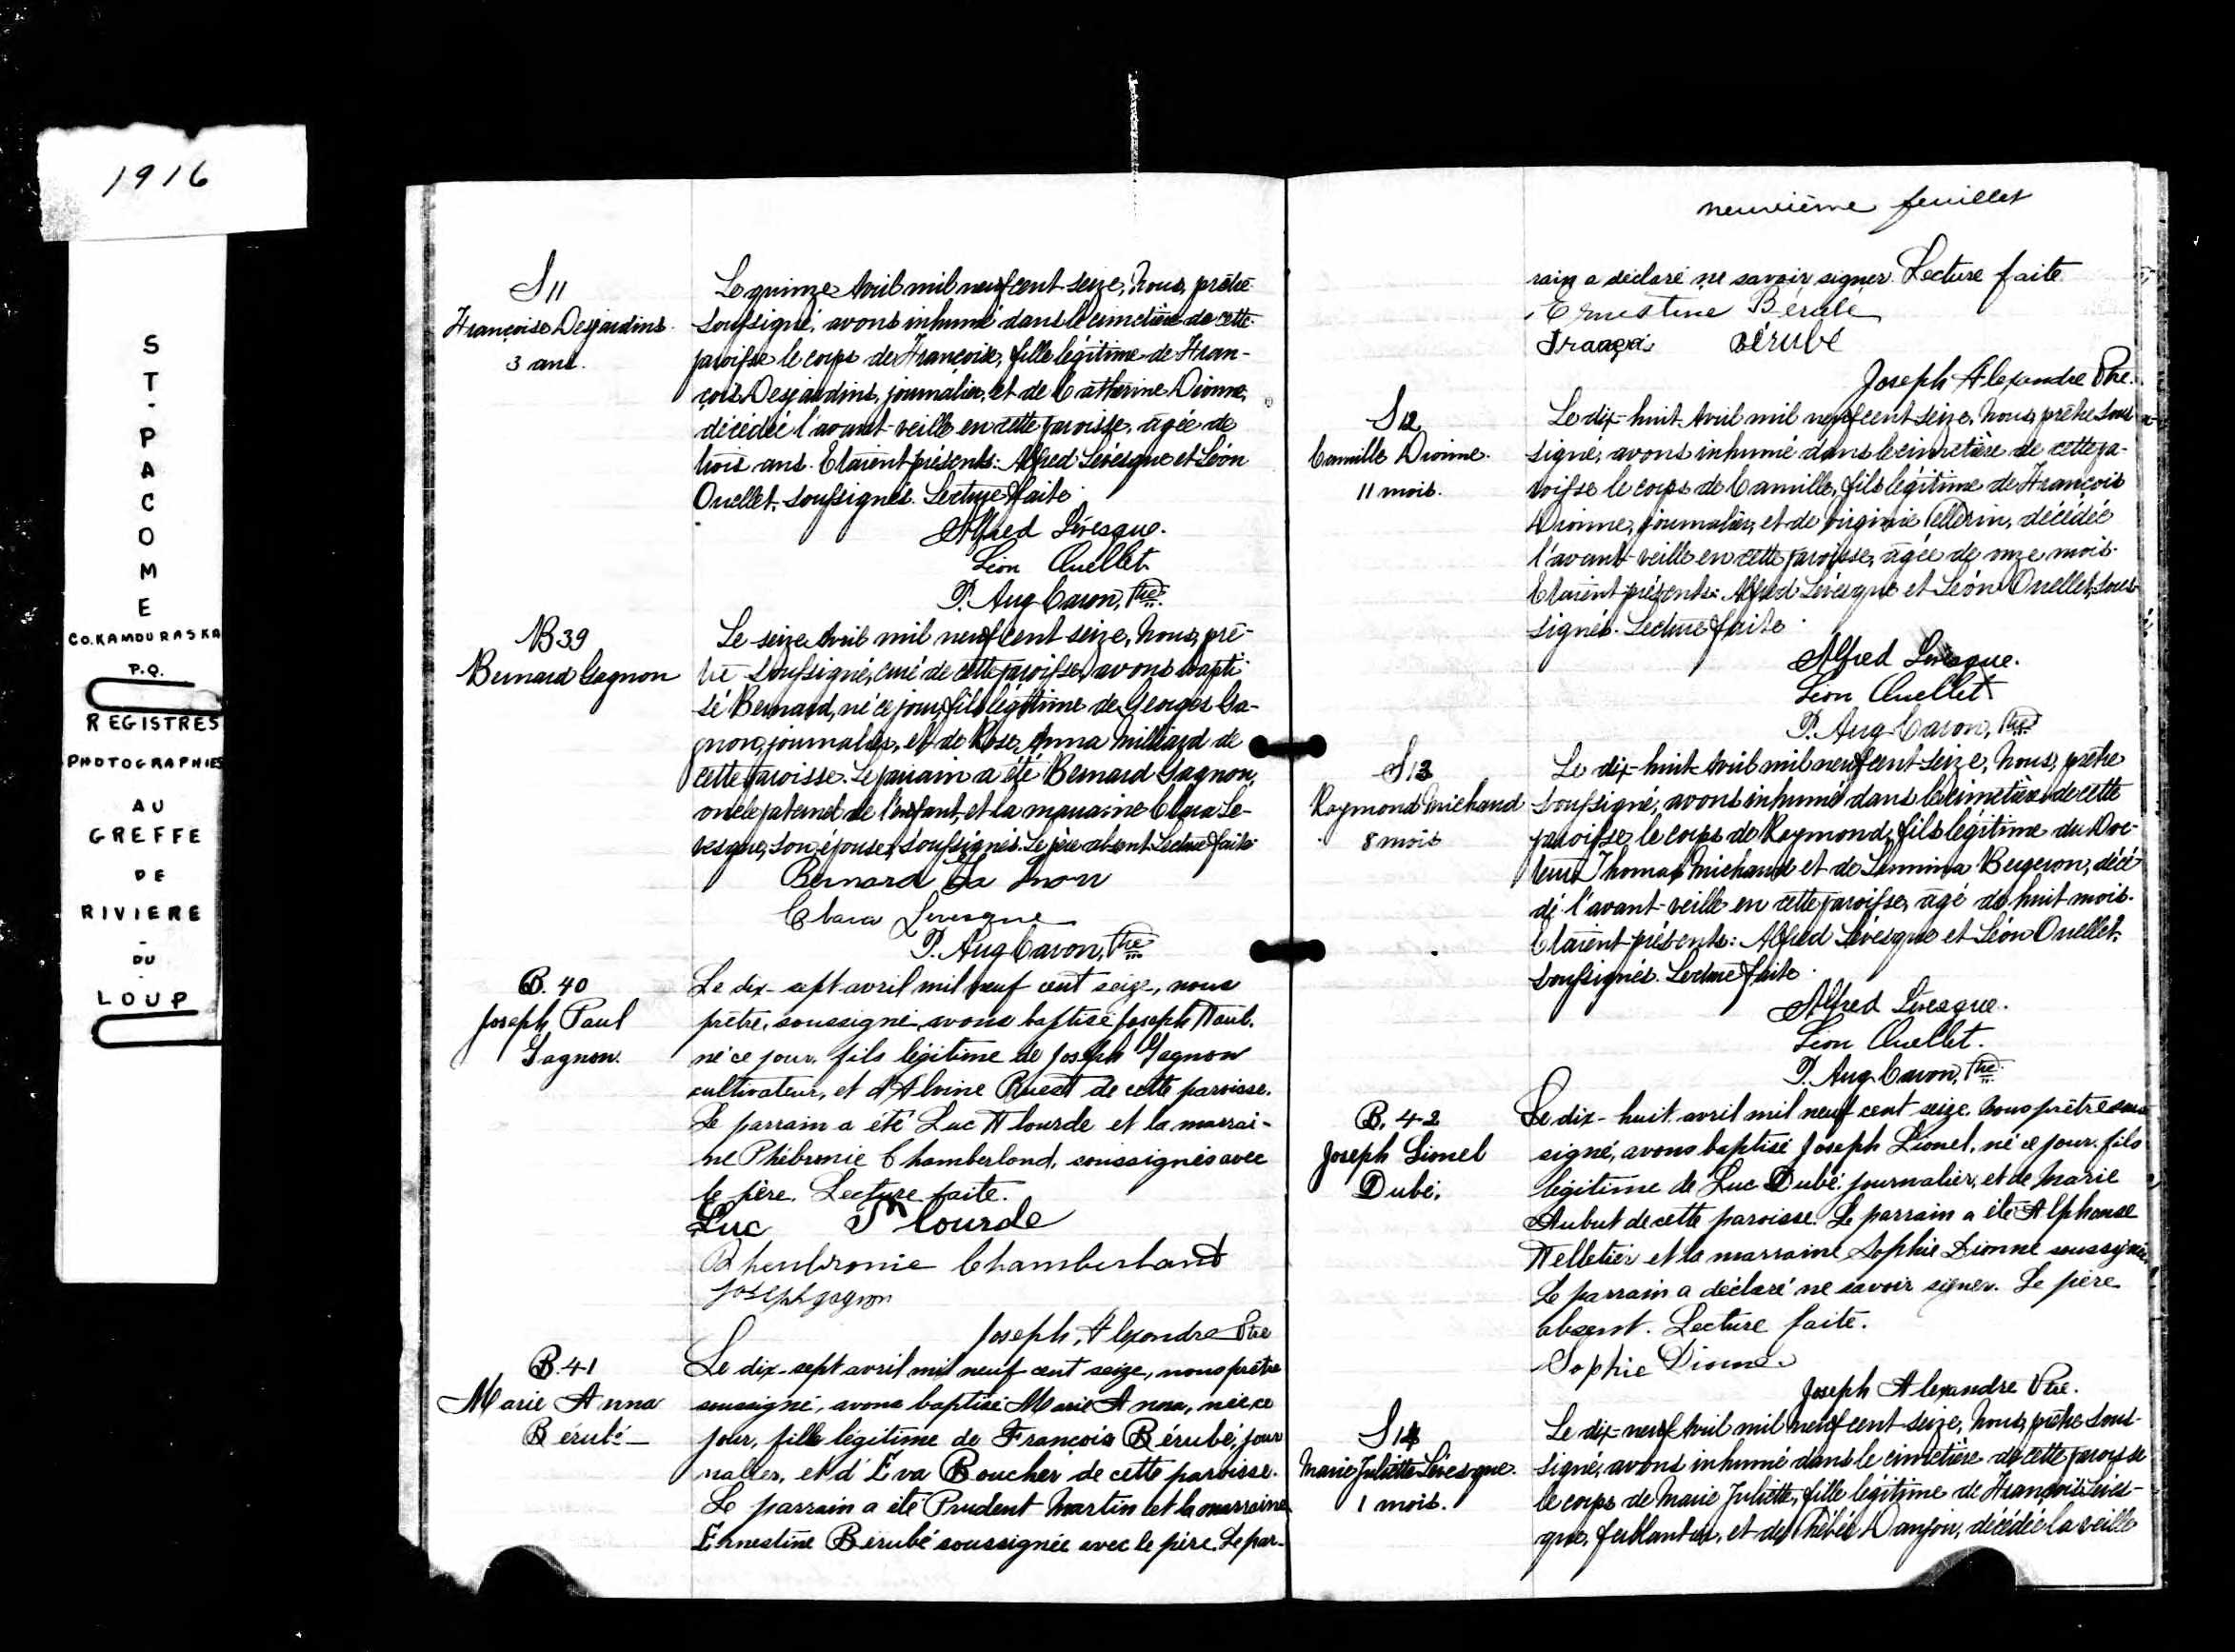 1916
ST-PACOME
CO. KAMOURASKA
P.Q.
REGISTRES
PHOTOGRAPHIES
AU
GREFFE
DE
RIVIERE
-
DU
-
LOUP
S 11
Françoise Desjardins.
3 ans.
Le quinze Avril mil neuf cent seize, Nous, prêtre
soussigné, avons inhumé dans le cimetière de cette
paroisse le corps de Françoise, fille légitime de Fran-
çois Desjardins, journalier, et de Catherine Dionne,
décédée l'avant-veille en cette paroisse, âgée de
trois ans. Etaient présents: Alfred Lévesque et Léon
Ouellet, soussignés. Lecture faite.
Alfred Lévesque.
Léon Ouellet
P. Aug Caron, Ptre
B 39
Bernard Gagnon
Le seize Avril mil neuf cent seize, Nous, prê-
tre soussigné, curé de cette paroisse, avons bapti-
sé Bernard, né ce jour, fils légitime de Georges Ga-
gnon, journalier, et de Rose Anna Milliard de
cette paroisse. Le parrain a été Bernard Gagnon,
oncle paternel de l'enfant, et la marraine Clara Le-
vesque, son épouse, soussignés. Le père absent. Lecture faite.
Bernard Ga gnon
Clara Levesque
P. Aug Caron, Ptre
B. 40
Joseph Paul
Gagnon.
Le dix-sept avril mil neuf cent seize, nous
prêtre, soussigné avons baptisé Joseph Paul,
né ce jour, fils légitime de Joseph Gagnon
cultivateur, et d'Alvine Ruest de cette paroisse.
Le parrain a été Luc Plourde et la marrai-
ne Phébronie Chamberland, soussignés avec
le père. Lecture faite.
Luc Plourde
Phenbronie Chamberland
Joseph gagnon
Joseph Alexandre Ptre
B. 41
Marie Anna
Bérubé
Le dix-sept avril mil neuf cent seize, nous prêtre
soussigné, avons baptisé Marie Anna, née ce
jour, fille légitime de François Bérubé, jour
nalier, et d'Eva Boucher de cette paroisse.
Le parrain a été Prudent Martin et la marraine
Ernestine Bérubé soussignée avec le père. Le par-
neuvième feuillet
rain a déclaré ne savoir signer. Lecture faite
Ernestine Bérubé
François Bérubé
Joseph Alexandre Ptre.
S 12
Camille Dionne.
11 mois.
Le dix-huit Avril mil neuf cent seize, Nous, prêtre sous
signé, avons inhumé dans le cimetière de cette pa-
roisse le corps de Camille, fils légitime de François
Dionne, journalier, et de Virginie Pellerin, décédée
l'avant-veille en cette paroisse, âgée de onze mois.
Etaient présents: Alfred Lévesque et Léon Ouellet, sous-
signés. Lecture faite.
Alfred Lévesque.
Léon Ouellet
P. Aug Caron, Ptre
S 13
Raymond Michaud
8 mois
Le dix-huit Avril mil neuf cent seize, Nous, prêtre
soussigné, avons inhumé dans le cimetière de cette
paroisse le corps de Raymond, fils légitime du Doc-
teur Thomas Michaud et de Bergeron, décé
dé l'avant-veille en cette paroisse, âgé de huit mois.
Etaient présents: Alfred Lévesque et Léon Ouellet,
soussignés. Lecture faite.
Alfred Lévesque.
Léon Ouellet.
P. Aug Caron, Ptre
B. 42
Joseph Lionel
Dubé.
Le dix-huit avril mil neuf cent seize. Nous prêtre sous
signé, avons baptisé Joseph Lionel, né ce jour, fils
légitime de Luc Dubé, journalier, et de Marie
Aubut de cette paroisse. Le parrain a été Alphonse
Pelletier et la marraine Sophie Dionne soussignée.
Le parrain a déclaré ne savoir signer. Le père
absent. Lecture faite.
Sophie Dionne
Joseph Alexandre Ptre.
S 14
Marie Juliette Lévesque.
1 mois.
Le dix-neuf Avril mil neuf cent seize, Nous, prêtre sous-
signé, avons inhumé dans le cimetière de cette paroisse
le corps de Marie Juliette, fille légitime de François Léves-
que, ferblantier, et de Phébée Danjou, décédée la veille